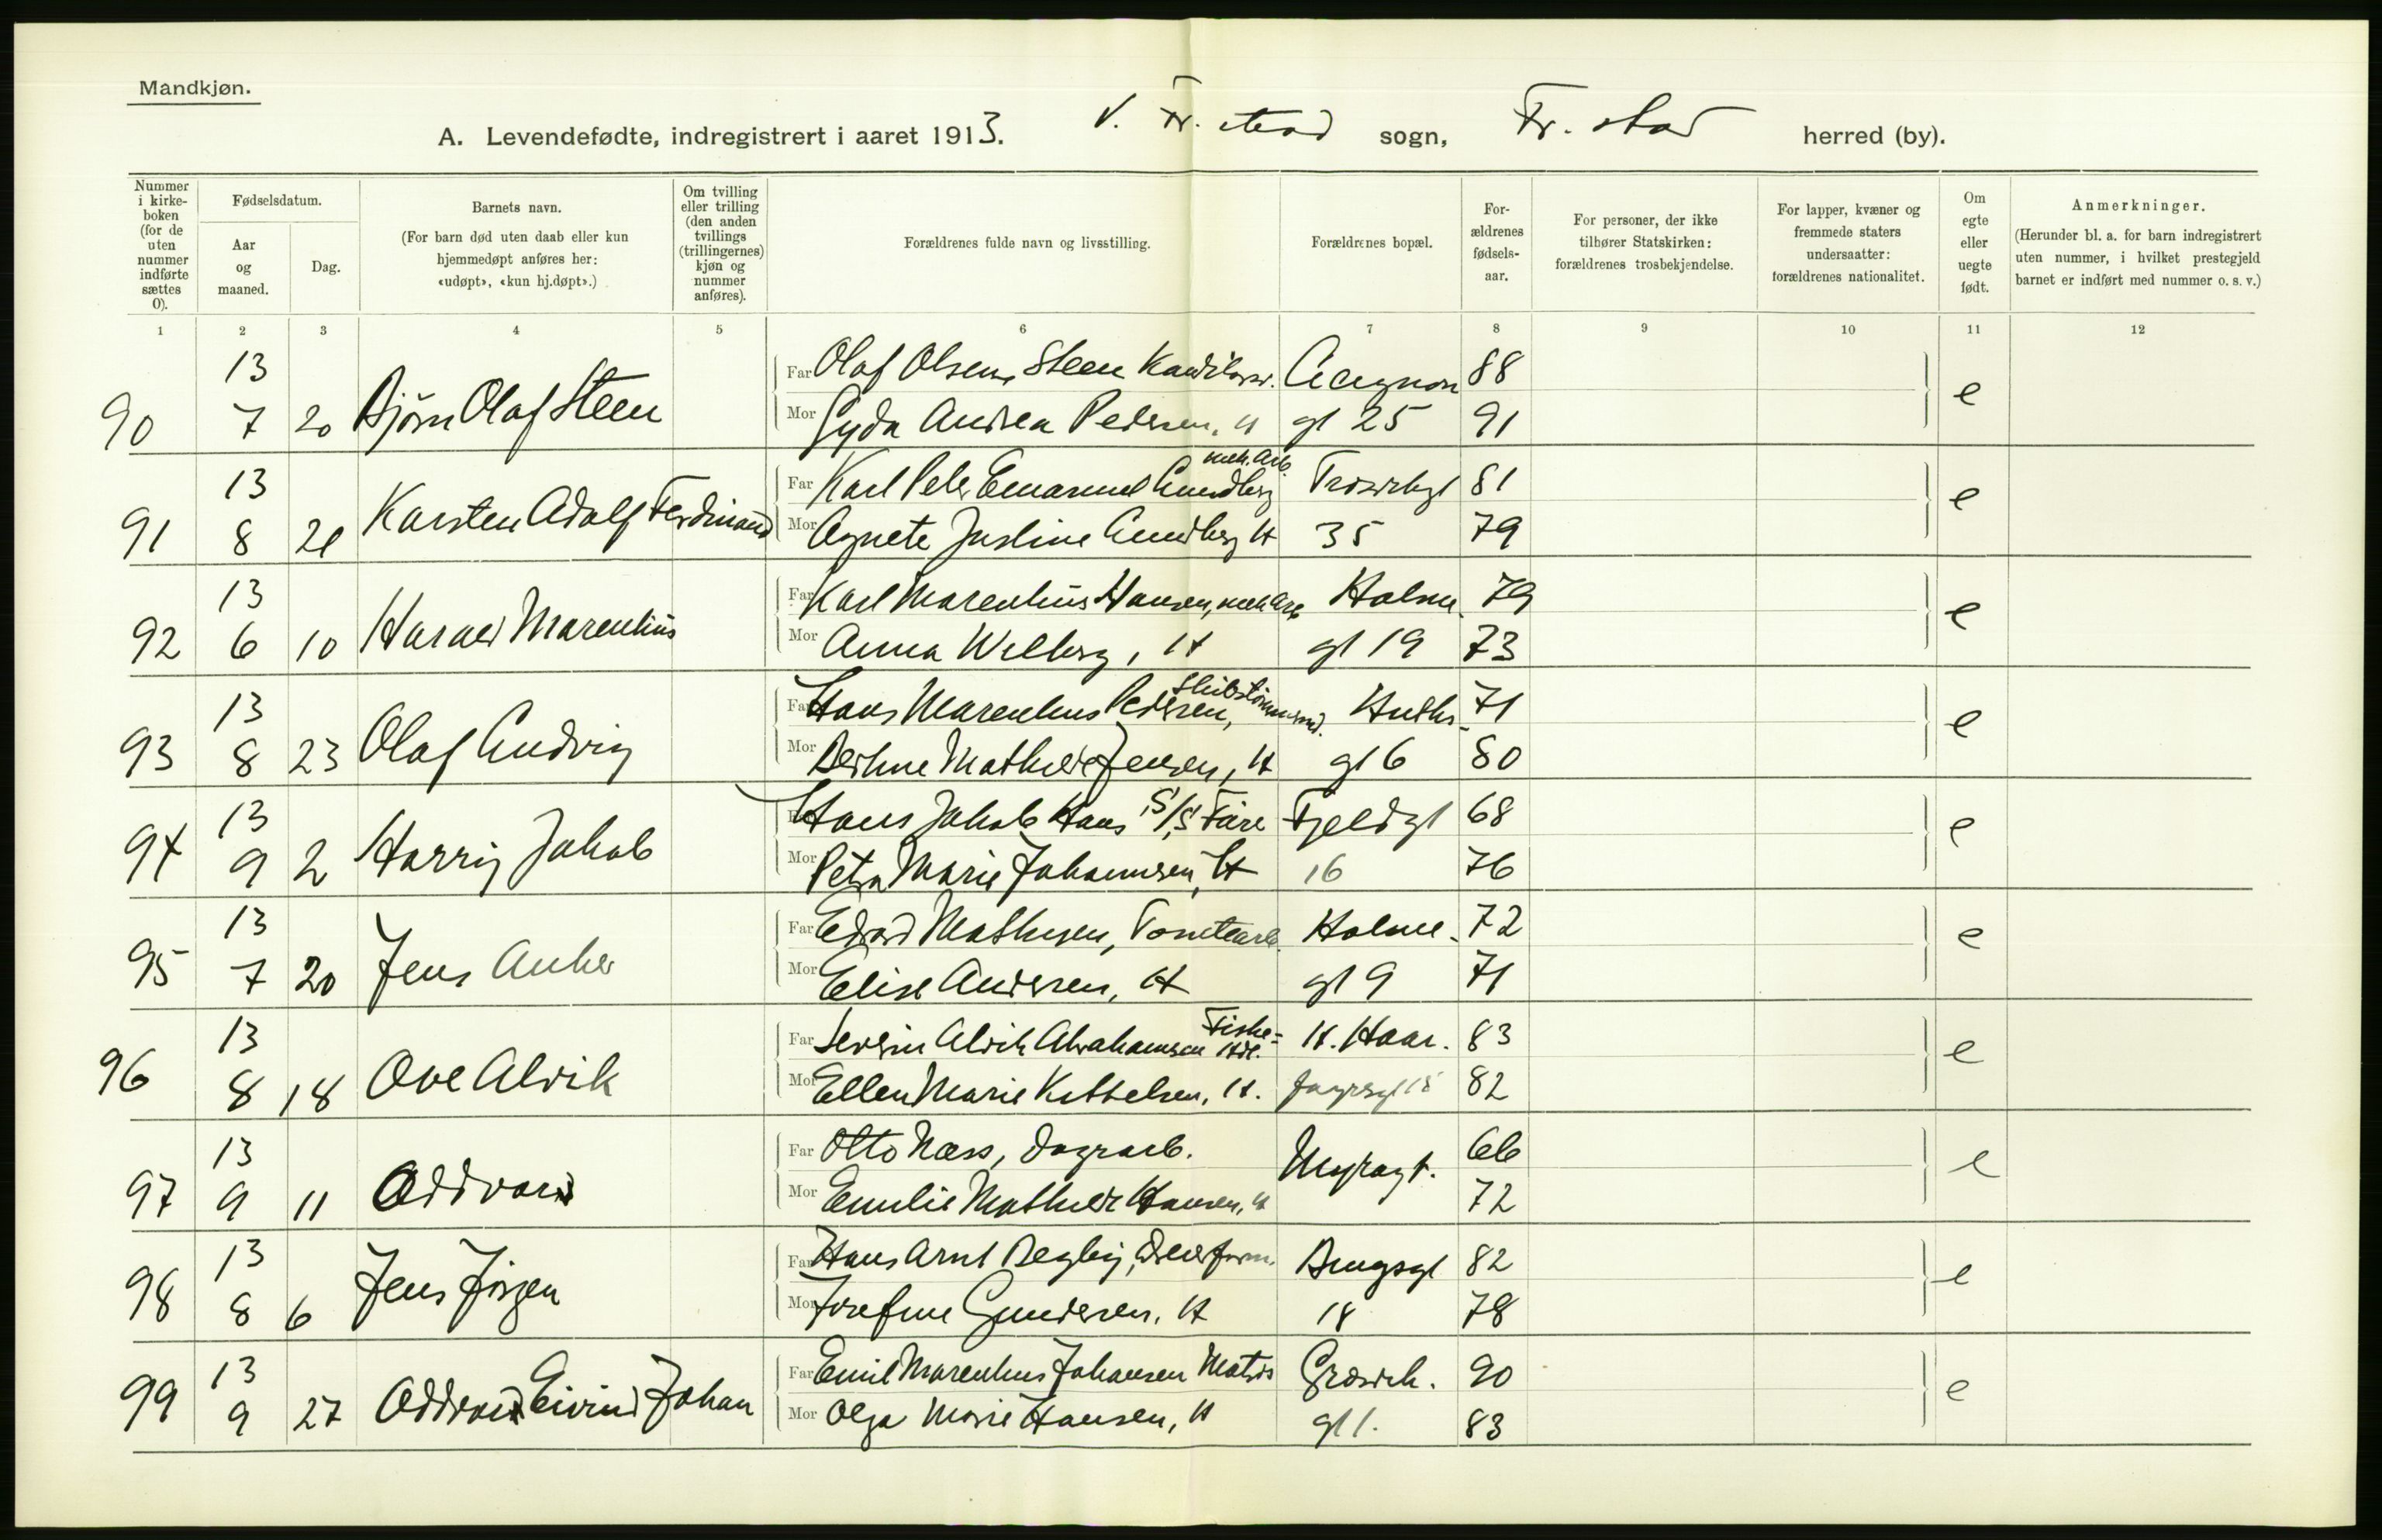 Mandkjøn.
A. Levendefødte, indregistrert i aaret 1913. V. Fr. stad sogn, Fr. stad herred (by).
Nummer i kirke-boken (for de uten nummer indførte sættes 0).
Fødselsdatum.
Aar og maaned.
Dag.
Barnets navn.
(For barn død uten daab eller kun hjemmedøpt anføres her: «udøpt», «kun hj.døpt».)
Om tvilling eller trilling (den anden tvillings (trillingernes) kjøn og nummer anføres).
Forældrenes fulde navn og livsstilling.
Forældrenes bopæl.
For-ældrenes fødsels-aar.
For personer, der ikke tilhører Statskirken: forældrenes trosbekjendelse.
For lapper, kvæner og fremmede staters undersaatter: forældrenes nationalitet.
Om egte eller uegte født.
Anmerkninger.
(Herunder bl. a. for barn indregistrert uten nummer, i hvilket prestegjeld barnet er indført med nummer o. s. v.)
1 2 3 4 5 6 7 8 9 10 11 12
13 Far Olaf Olsen Steen 88
90 7 20 Bjørn Olaf Steen Mor Lyda Andrea Pedersen, H gl 25 91 e
13 Far Karl Peter Emanuel Lundberg mek. Arb. 81
91 8 21 Karsten Adolf Ferdinand Mor Agnete Justine Lundberg H 35 79 e
13 Far Karl Marenhius Hansen, mek Arb Holme- 79
92 6 10 Harald Marenhius Mor Anna Wilberg, H gl 19 73 e
13 Far Hans Marenhius Pedersen, Skibstømmerm. 71
93 8 23 Olaf Ludvig Mor Berthine Mathilde Jensen, H gl 6 80 e
13 Hans Jakob Hans S/S Fære Fjeldgl 68
94 9 2 Harry Jakob Mor Petra Marie Johannesen, H 16 76 e
13 Far Edvard Mathisen, Tomtearb. Holme- 72
95 7 20 Jens Anker Mor Elise Andersen, H gl 9 71 e
13 Far Severin Alvik Abrahamsen Fiske= H. Haar. 83
96 8 18 Ove Alvik Mor Ellen Marie Kittelsen, H. 82 e
13 Far Otto Næss, Dagarb. Myragt. 66
97 9 11 Oddvar Mor Emilie Mathilde Hansen, H 72 e
13 Far Hans Arnt Begby, 82
98 8 6 Jens Jørgen Mor Josefine Gundersen, H 18 78 e
13 Far Emil Marenhius Johansen Matros 90
99 9 27 Oddvar Eivind Johan Mor Olga Marie Hansen, H gl 1. 83 e